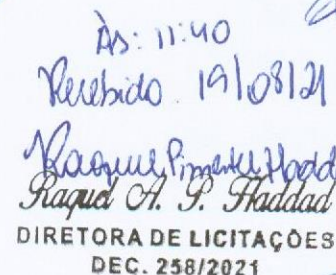 Às: 11:40
Recebido 19/08/21
Raquel Pimentel Hadd
Raquel A. P. Haddad
DIRETORA DE LICITAÇÕES
DEC. 258/2021